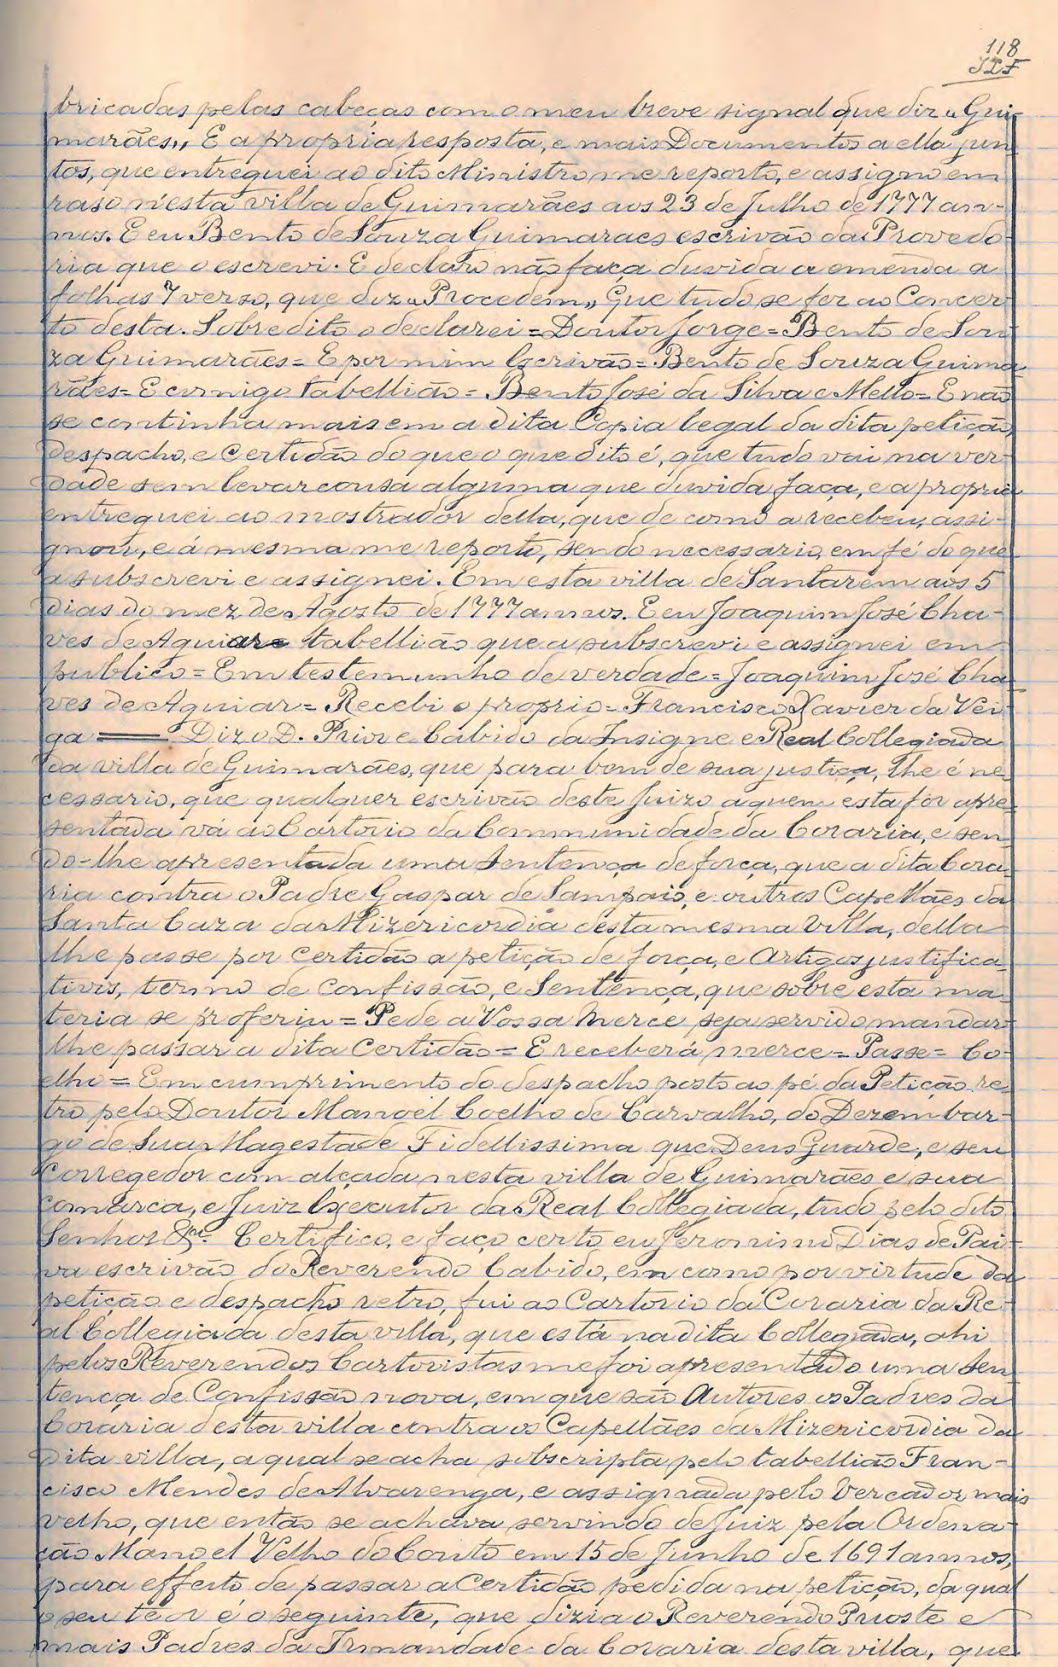 118
bricadas pelas cabeças com o meu breve signal que diz „Gui-
marães„ E a propria resposta, e mais Documentos a ella jun-
tos, que entreguei ao dito Ministro me reporto, e assigno em
raso n'esta villa de Guimarães aos 23 de Julho de 1777 an-
nos. E eu Bento de Souza Guimaraes escrivão da Provedo-
ria que o escrevi. E declaro não faça duvida a emenda a
folhas 7 verso, que diz „Procedem„ Que tudo se fez ao Concer-
to desta. Sobredito o declarei = Doutor Jorge = Bento de Sou-
za Guimarães = E por mim Escrivão = Bento de Souza Guima-
rães = E comigo tabellião = Bento José da Silva e Mello = E não
se continha mais em a dita Copia legal da dita petição,
despacho, e Certidão do que o que dito é, que tudo vai na ver-
dade sem levar cousa alguma que duvida faça, e a propria
entreguei ao mostrador della, que de como a recebeu, assi-
gnou, e á mesma me reporto, sendo necessario, em fé do que
a subscrevi e assignei. Em esta villa de Santarem aos 5
dias do mez de Agosto de 1777 annos. E eu Joaquim José Cha-
ves de Aguiar tabellião que a subscrevi e assignei em
publico = Em testemunho de verdade = Joaquim José Cha-
ves de Aguiar = Recebi o proprio = Francisco Xavier da Vei-
ga = Diz o D. Prior e Cabido da Insigne e Real Collegiada
da villa de Guimarães, que para bem de sua justiça, lhe é ne-
cessario, que qualquer escrivão deste Juizo a quem esta fôr apre-
sentada vá ao Cartorio da Communidade da Coraria, e sen-
do-lhe apresentada uma Sentença de força, que a dita Cora-
ria contra o Padre Gaspar de Sampaio, e outros Capellães da
Santa Caza da Mizericordia desta mesma Villa, della
lhe passe por certidão a petição de força, e Artigos justifica-
tivis, termo de confissão, e Sentença, que sobre esta ma-
teria se proferiu = Pede a Vossa Merce seja servido mandar-
lhe passar a dita Certidão = E receberá merce = Passe = Co-
elho = Em cumprimento do despacho posto ao pé da Petição re-
tro pelo Doutor Manoel Coelho de Carvalho, do Dezembar-
go de Sua Magestade Fidellissima que Deus Guarde, e seu
Corregedor com alçada nesta villa de Guimarães e sua
comarca, e Juiz Executor da Real Collegiada, tudo pelo dito
Senhor &ca. Certifico, e faço certo eu Jeronimo Dias de Pai-
va escrivão do Reverendo Cabido, em como por virtude da
petição e despacho retro, fui ao Cartorio da Coraria da Re-
al Collegiada desta villa, que está na dita Collegiada, ahi
pelos Reverendos Cartoristas me foi apresentado uma Sen-
tença de Confissão nova, em que são Autores os Padres da
Coraria desta villa contra os Capellães da Mizericordia da
dita villa, a qual se acha subscripta pelo tabellião Fran-
cisco Mendes de Alvarenga, e assignada pelo Vereador mais
velho, que então se achava servindo de Juiz pela Ordena-
ção Manoel Velho do Couto em 15 de Junho de 1691 annos,
para effeito de passar a Certidão pedida na petição, da qual
o seu teor é o seguinte, que dizia o Reverendo Prioste e
mais Padres da Irmandade da Coraria desta villa, que